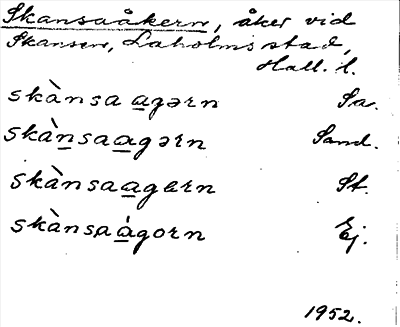 Skansaåkern, åker vid
Skansen, Laholms stad,
Hall. l.
skànsa a̲gərn Sa.
skàn̲saa̲gərn Sand.
skànsaa̲gɐrn St.
skànsaà̲gorn Ej.
1952.